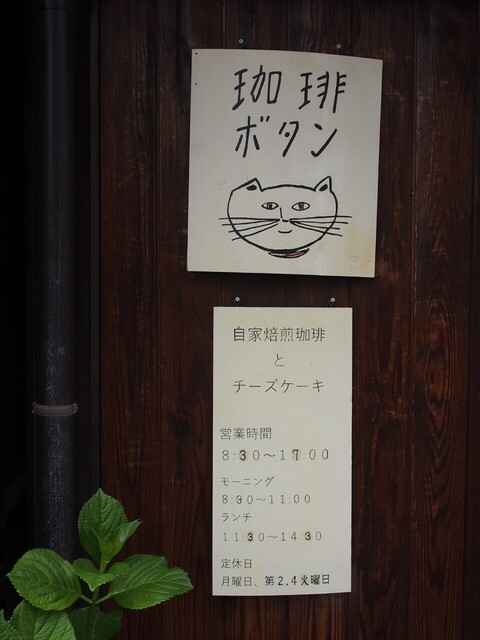 珈琲
ボタン
自家焙煎珈琲
と
チーズケーキ
営業時間
8:30～17:00
モーニング
8:30～11:00
ランチ
11:30～14:30
定休日
月曜日、第2.4火曜日